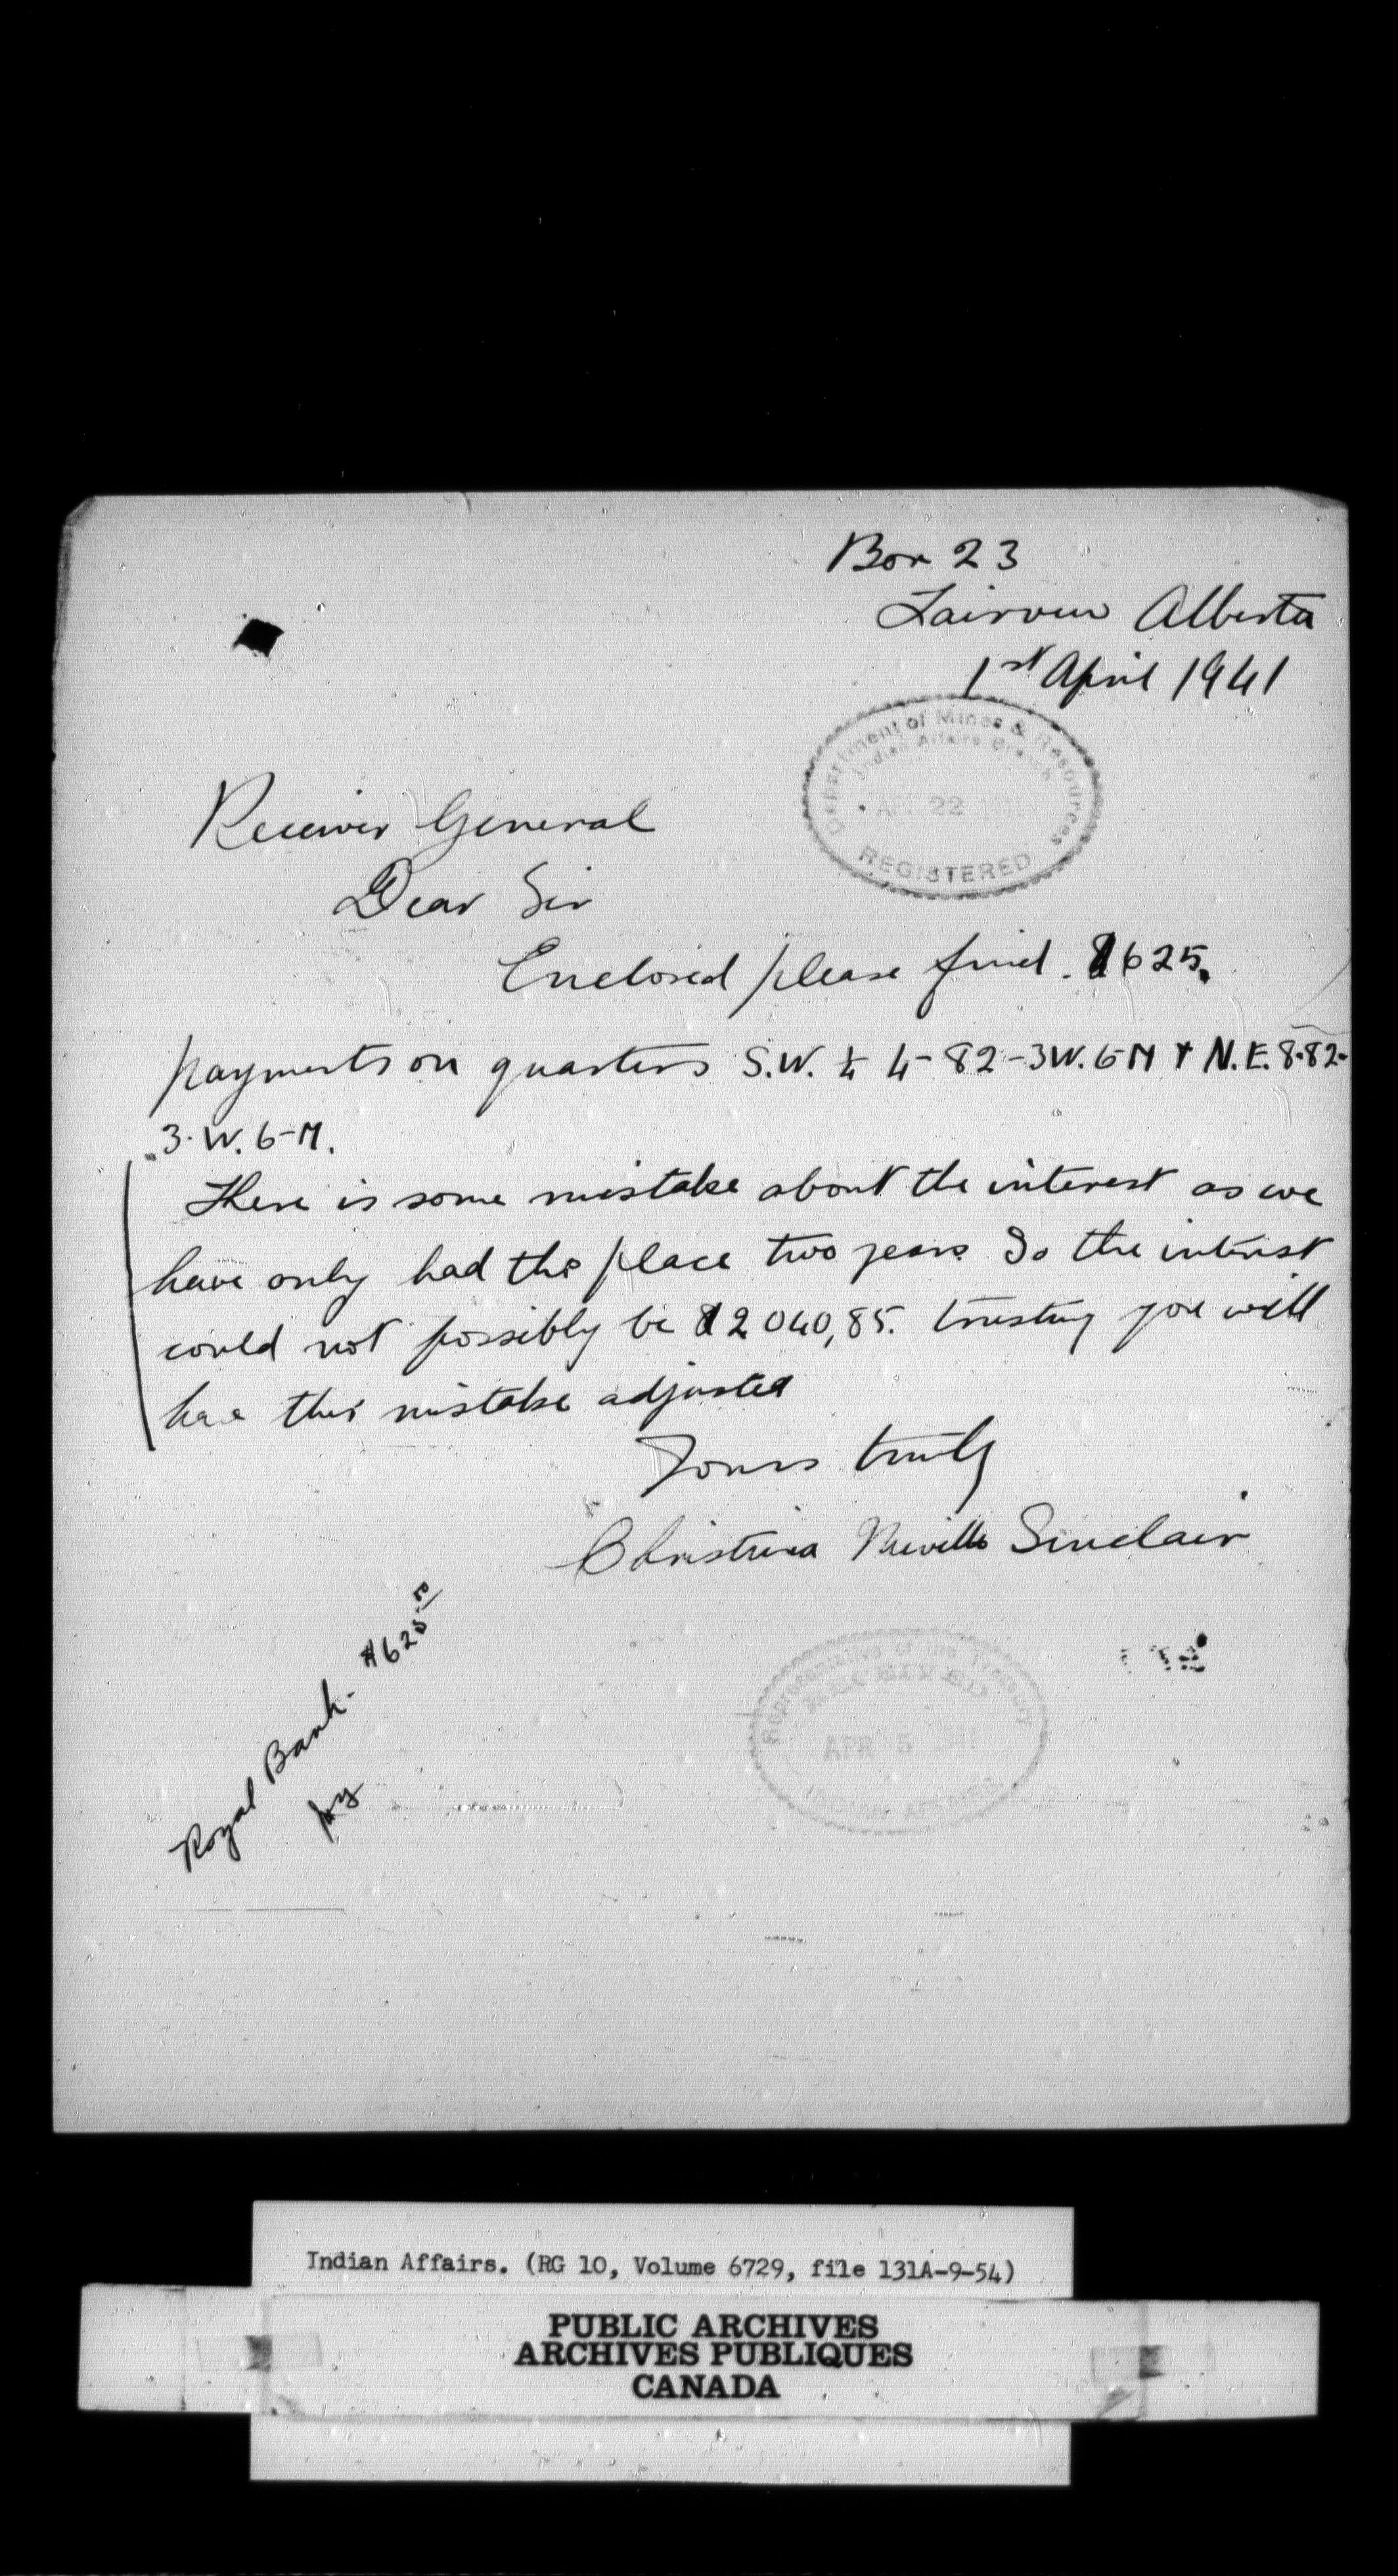 Box 23
Fairview Alberta
1st April 1941
Department of Mines & Resources
Indian Affairs Branch
APR 22
REGISTERED
Receiver General
Dear Sir
Enclosed please find . $625.
payments on quarters S.W. ¼ 4-82-3W.6M + N.E. 8-82-
3.W.6-M.
There is some mistake about the interest as we
have only had the place two years So the interest
could not possibly be $2040,85. trusting you will
have this mistake adjusted
Yours truly
Christina Neville Sinclair
Royal Bank - $625.00
Representative of the Treasury
RECEIVED
APR 5
INDIAN AFFAIRS
Indian Affairs. (RG 10, Volume 6729, file 131A-9-54)
PUBLIC ARCHIVES
ARCHIVES PUBLIQUES
CANADA